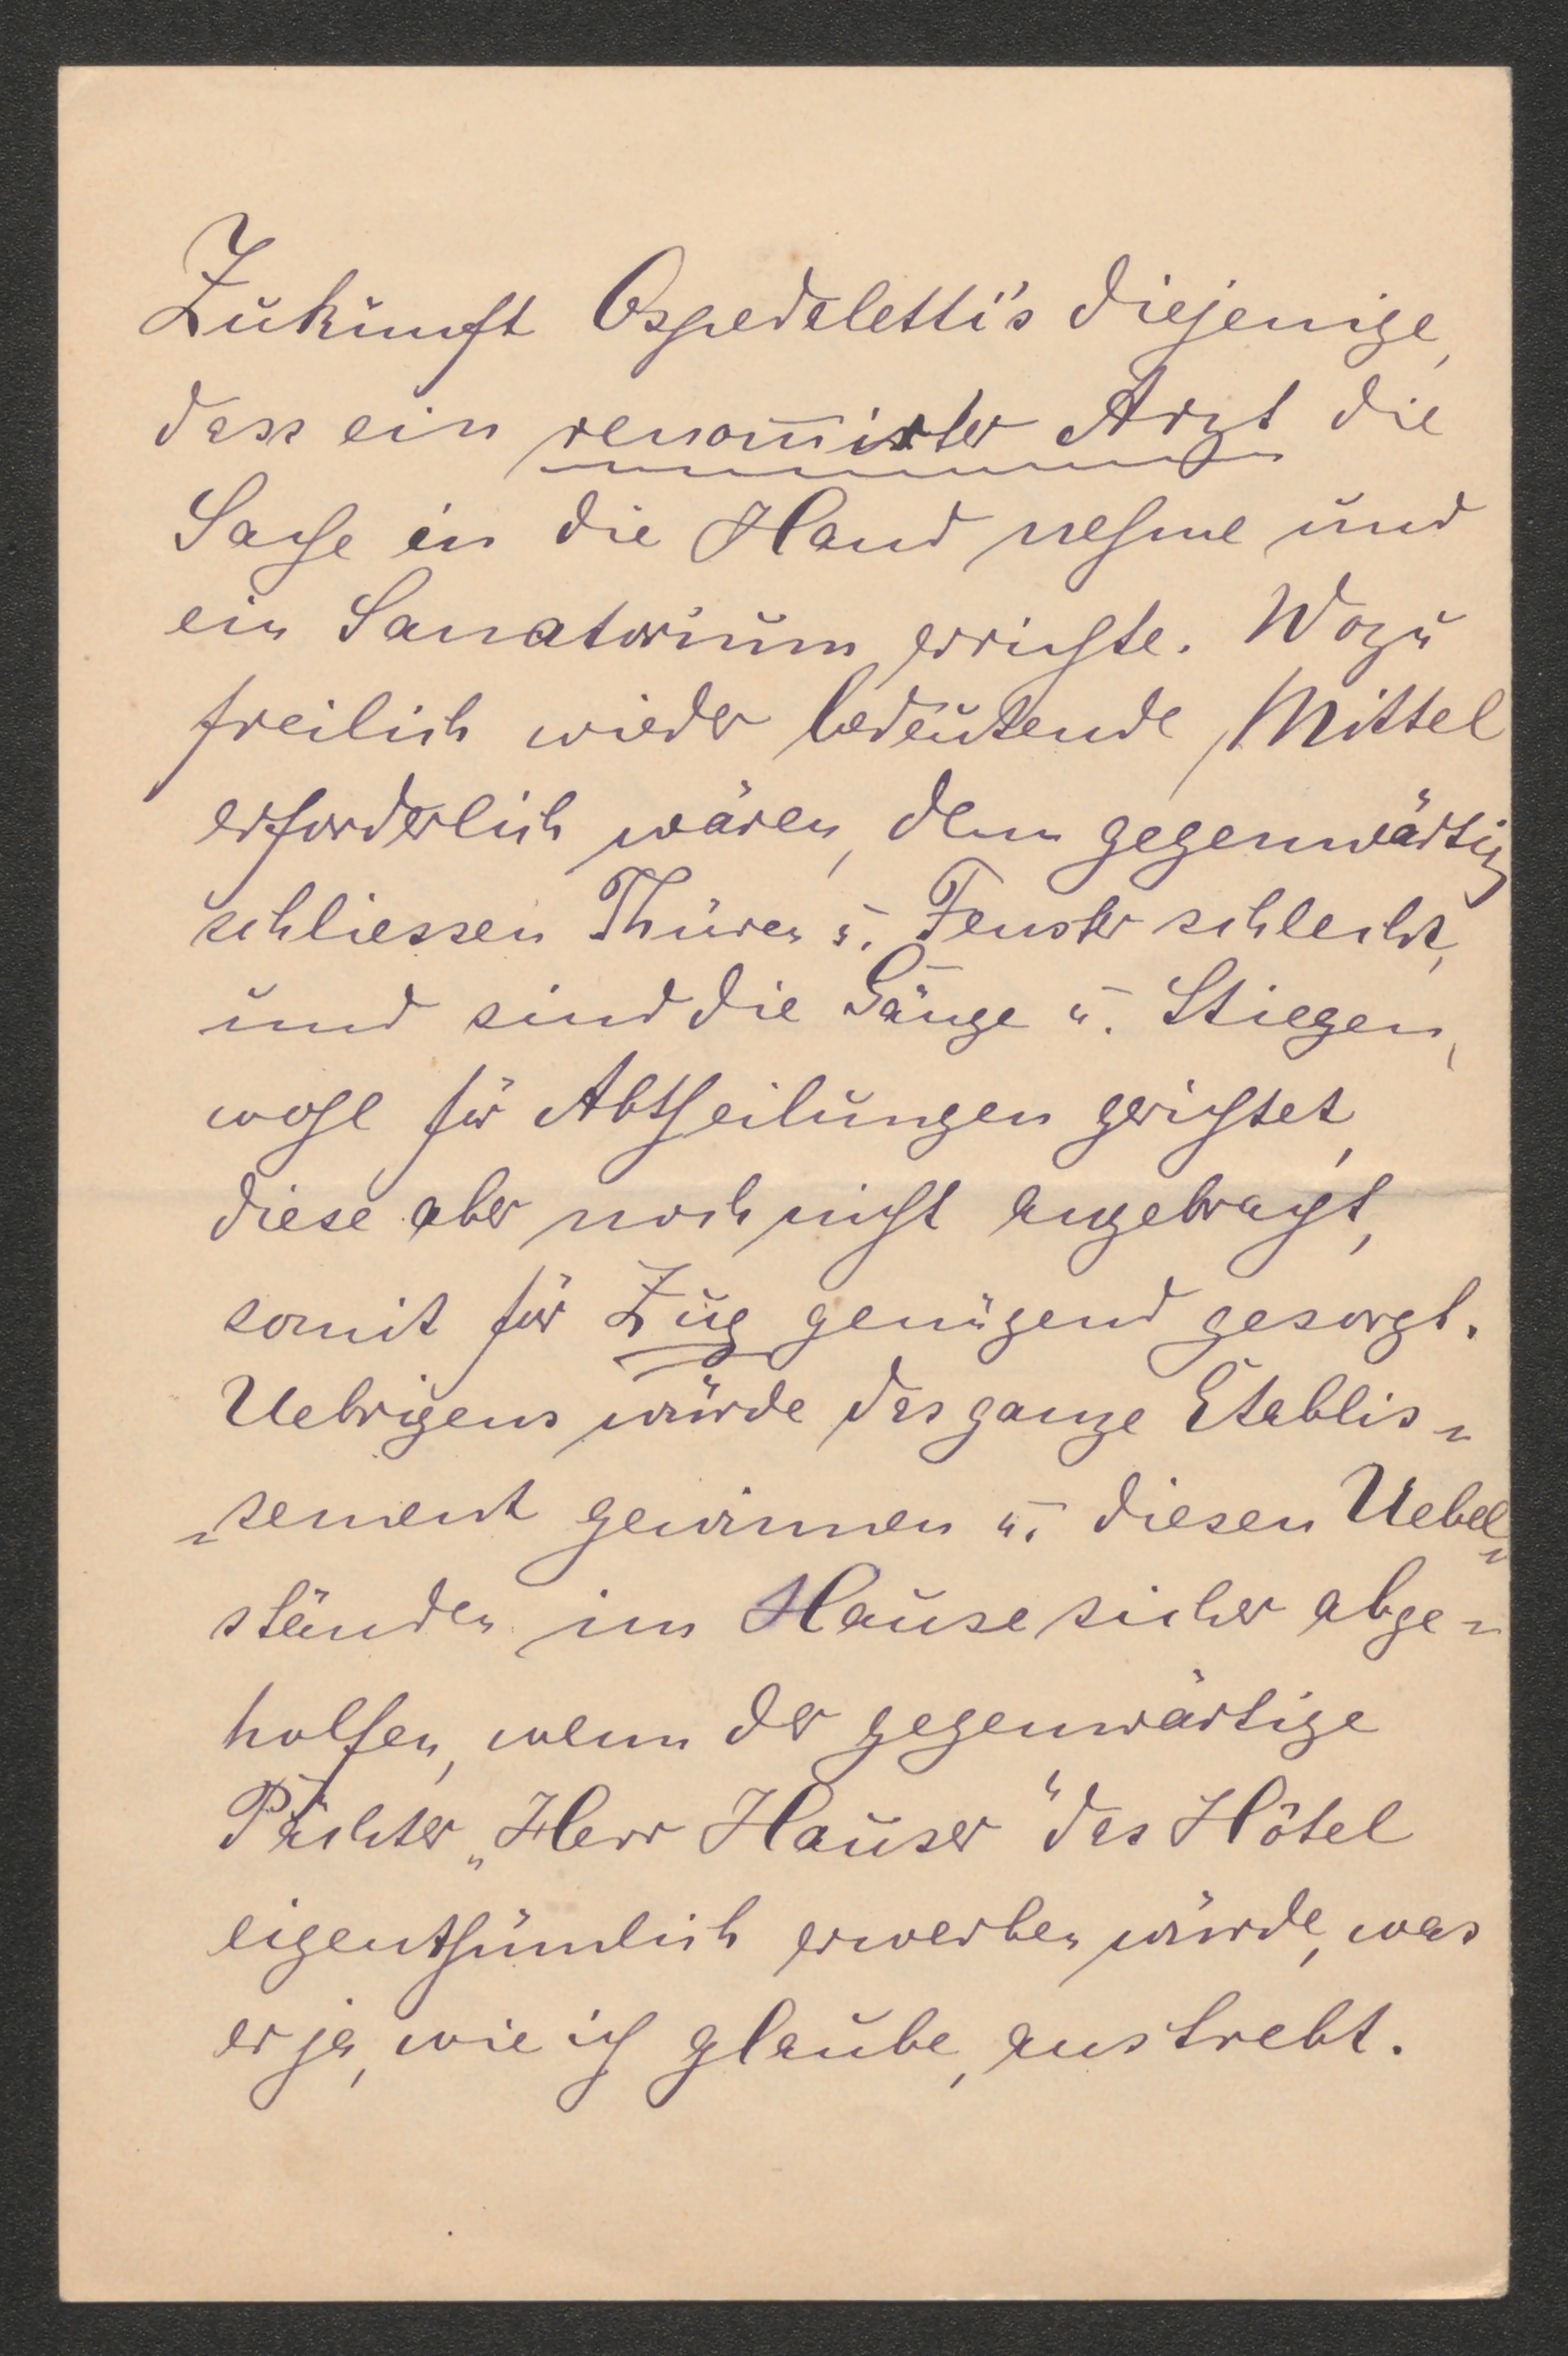 Zukunft Ospedaletti's diejenige,
dass ein renom̅irter Arzt die
Sache in die Hand nehme und
ein Sanatorium errichte. Wozu
freilich wieder bedeutende Mittel
erforderlich wären, denn gegenwärtig
schliessen Thüren u. Fenster schlecht,
und sind die Gänge u. Stiegen,
wohl für Abtheilungen gerichtet,
diese aber noch nicht angebracht,
somit für Zug genügend gesorgt.
Uebrigens würde das ganze Etablis=
=sement gewinnen u. diesen Uebel=
ständen im Hause sicher abge=
holfen, wenn der gegenwärtige
Pächter „Herr Hauser" das Hôtel
eigenthümlich erwerben würde, was
er ja, wie ich glaube, anstrebt.